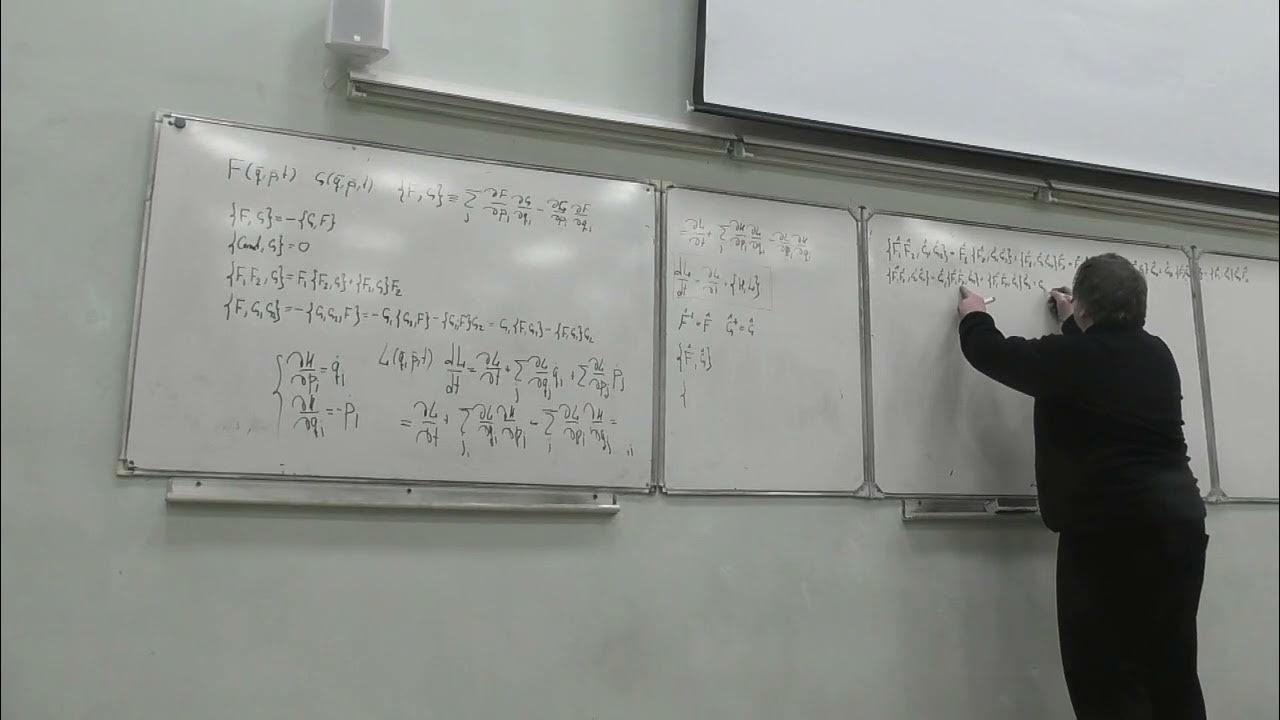 F(q̄,p̄,t) G(q̄,p̄,t) {F,G} ≡ ∑_j ∂F/∂p_j ∂G/∂q_j − ∂G/∂p_j ∂F/∂q_j
{F,G}=−{G,F}
{Const,G}=0
{F₁F₂,G}=F₁{F₂,G}+{F₁,G}F₂
{F,G₁G₂}=−{G₁G₂,F}=−G₁{G₂,F}−{G₁F}G₂=
∂H/∂p_j = q̇_j
∂H/∂q_j = −ṗ_j
L(q̄,p̄,t) dL/dt = ∂L/∂t + ∑_j ∂L/∂q_j q̇_j + ∑ ∂L/∂p_j ṗ_j
= ∂L/∂t + ∑_j ∂L/∂q_j ∂H/∂p_j − ∑_j ∂L/∂p_j ∂H/∂q_j =
= ∂L/∂t + ∑_j ∂H/∂p_j ∂L/∂q_j − ∂L/∂p_j ∂H/∂q_j
dL/dt = ∂L/∂t + {H,L}
F̂⁺=F̂ Ĝ⁺=Ĝ
{F̂,Ĝ}
{
{F̂₁F̂₂,Ĝ₁Ĝ₂}=F̂₁{F̂₂,Ĝ₁Ĝ₂}+{F̂₁,Ĝ₁Ĝ₂}F̂₂=
{F̂₁F̂₂,Ĝ₁Ĝ₂}=Ĝ₁{F̂₁F̂₂,Ĝ₂}+{F̂₁F̂₂,Ĝ₁}Ĝ₂=